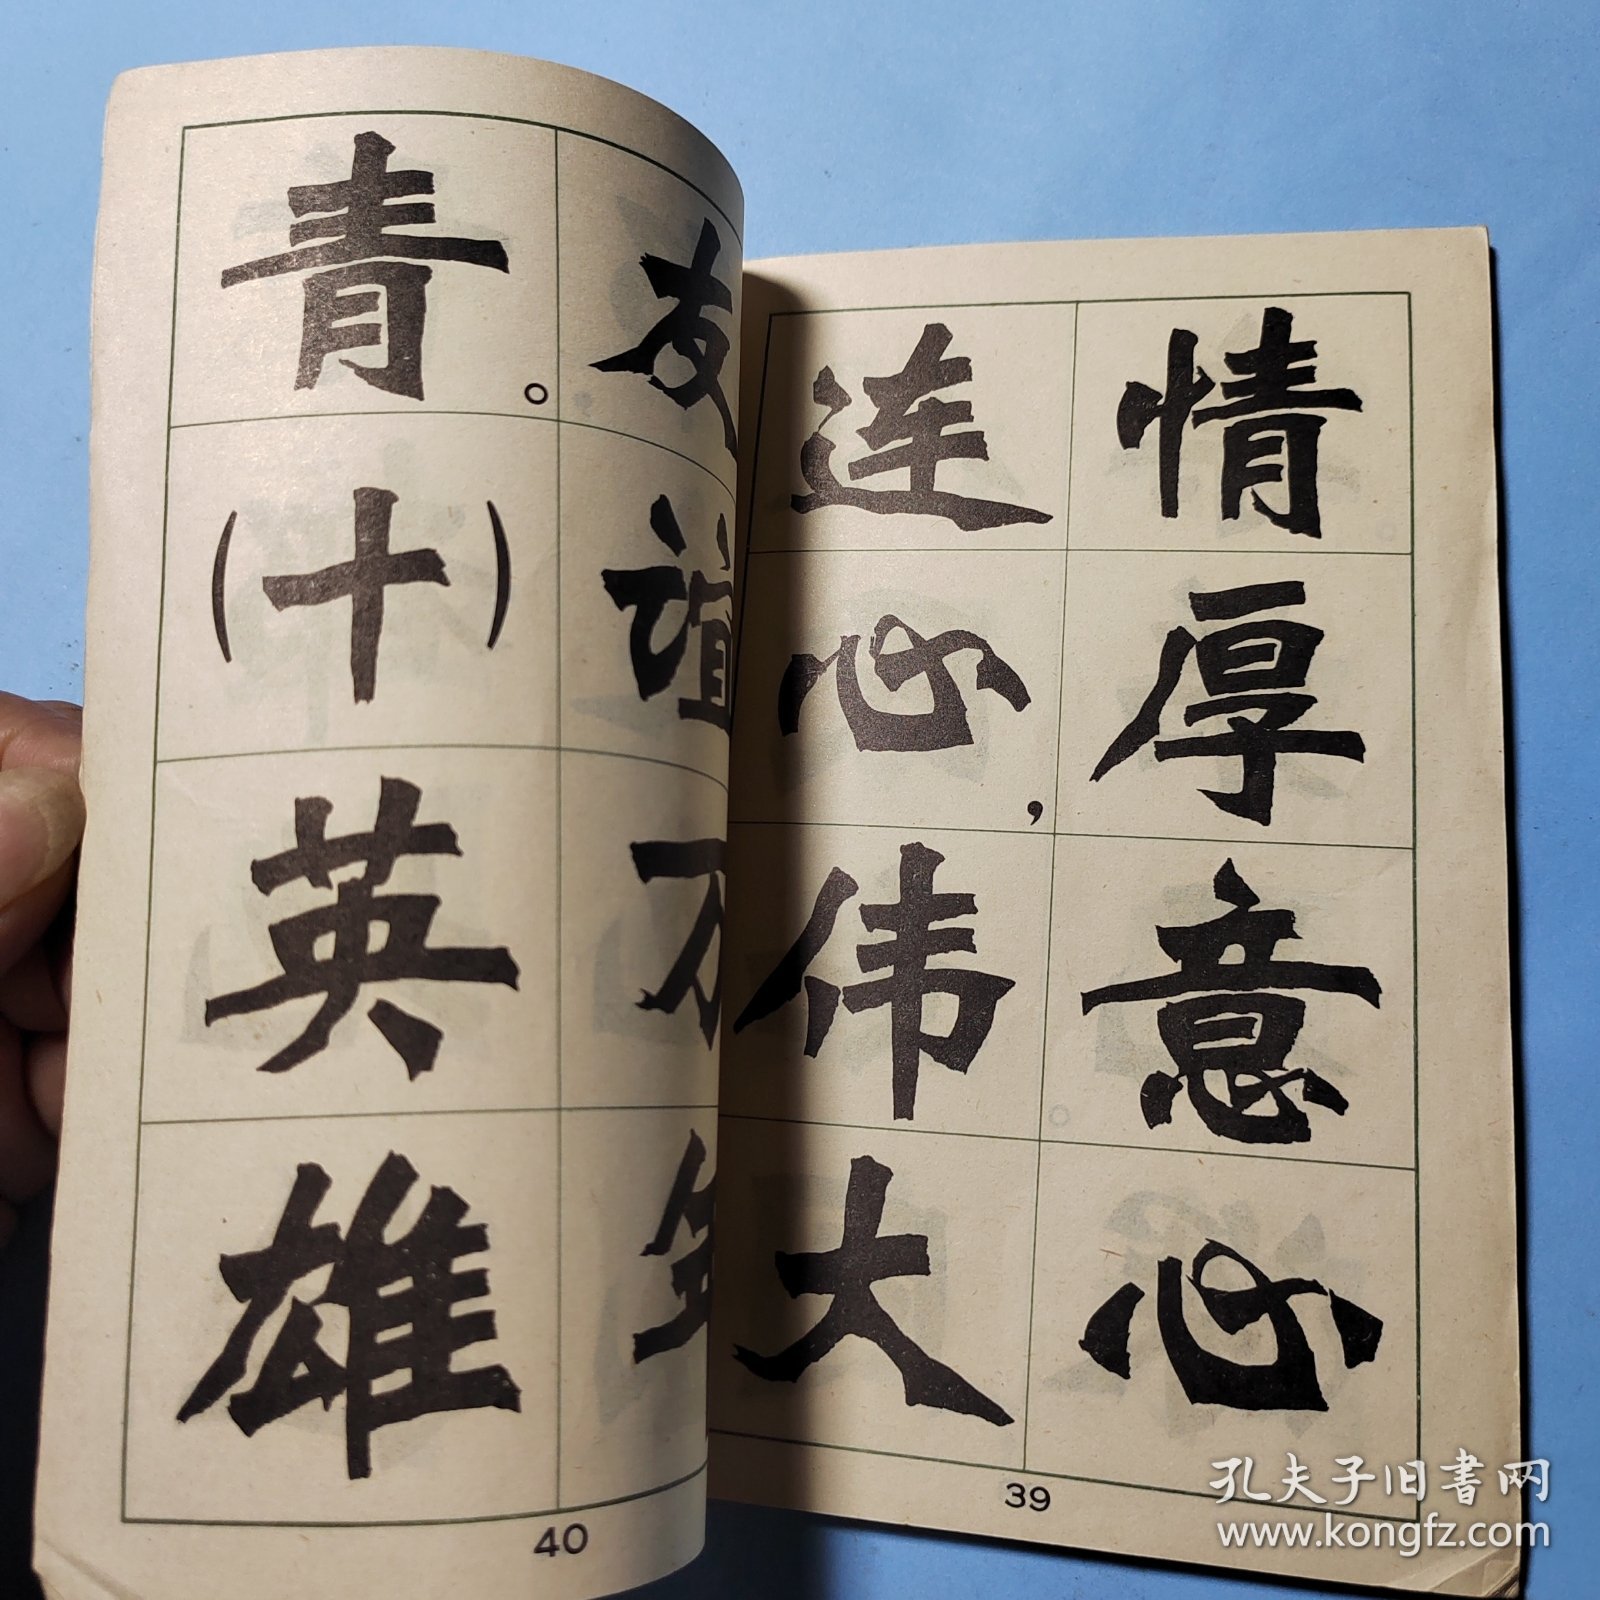 情厚意心
连心，伟大
39
友谊万年
青。
(十)英雄
40
孔夫子旧书网
www.kongfz.com